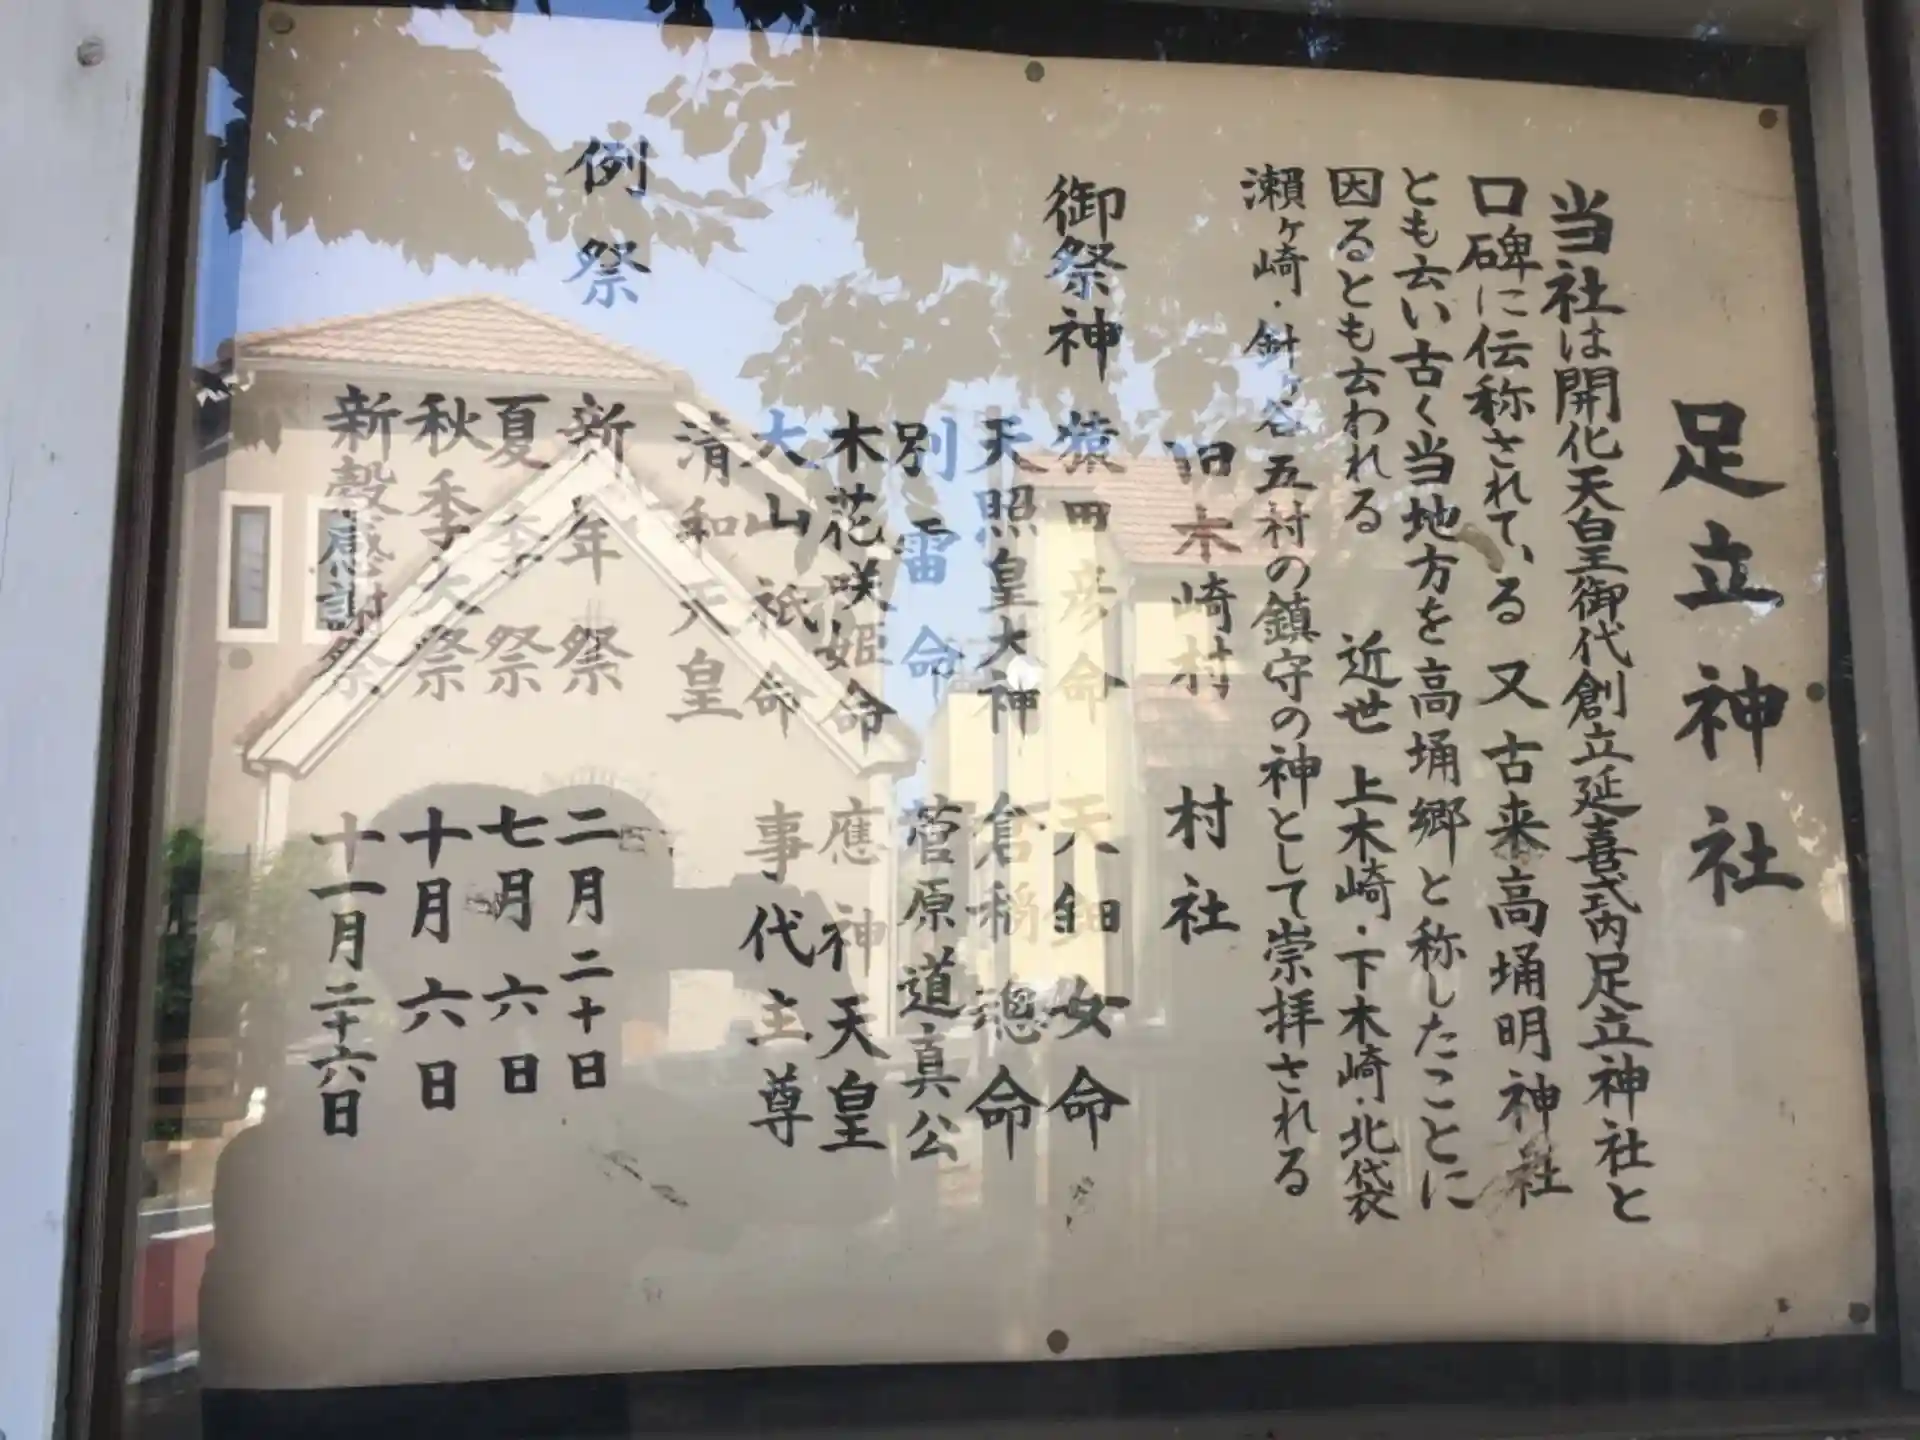 足立神社
当社は開化天皇御代創立延喜式内足立神社と
口碑に伝称されている 又古来高埇明神社
とも云い古く当地方を高埇郷と称したことに
因るとも云われる 近世 上木崎・下木崎・北袋
瀬ヶ崎・針ヶ谷五村の鎮守の神として崇拝される
旧木崎村 村社
御祭神 猿田彦命 天鈿女命
天照皇大神 倉稲魂命
別雷命 菅原道真公
木花咲姫命 應神天皇
大山祇命 事代主尊
清和天皇
例祭 新年祭 二月二十日
夏季祭 七月六日
秋季大祭 十月六日
新穀感謝祭 十一月二十六日